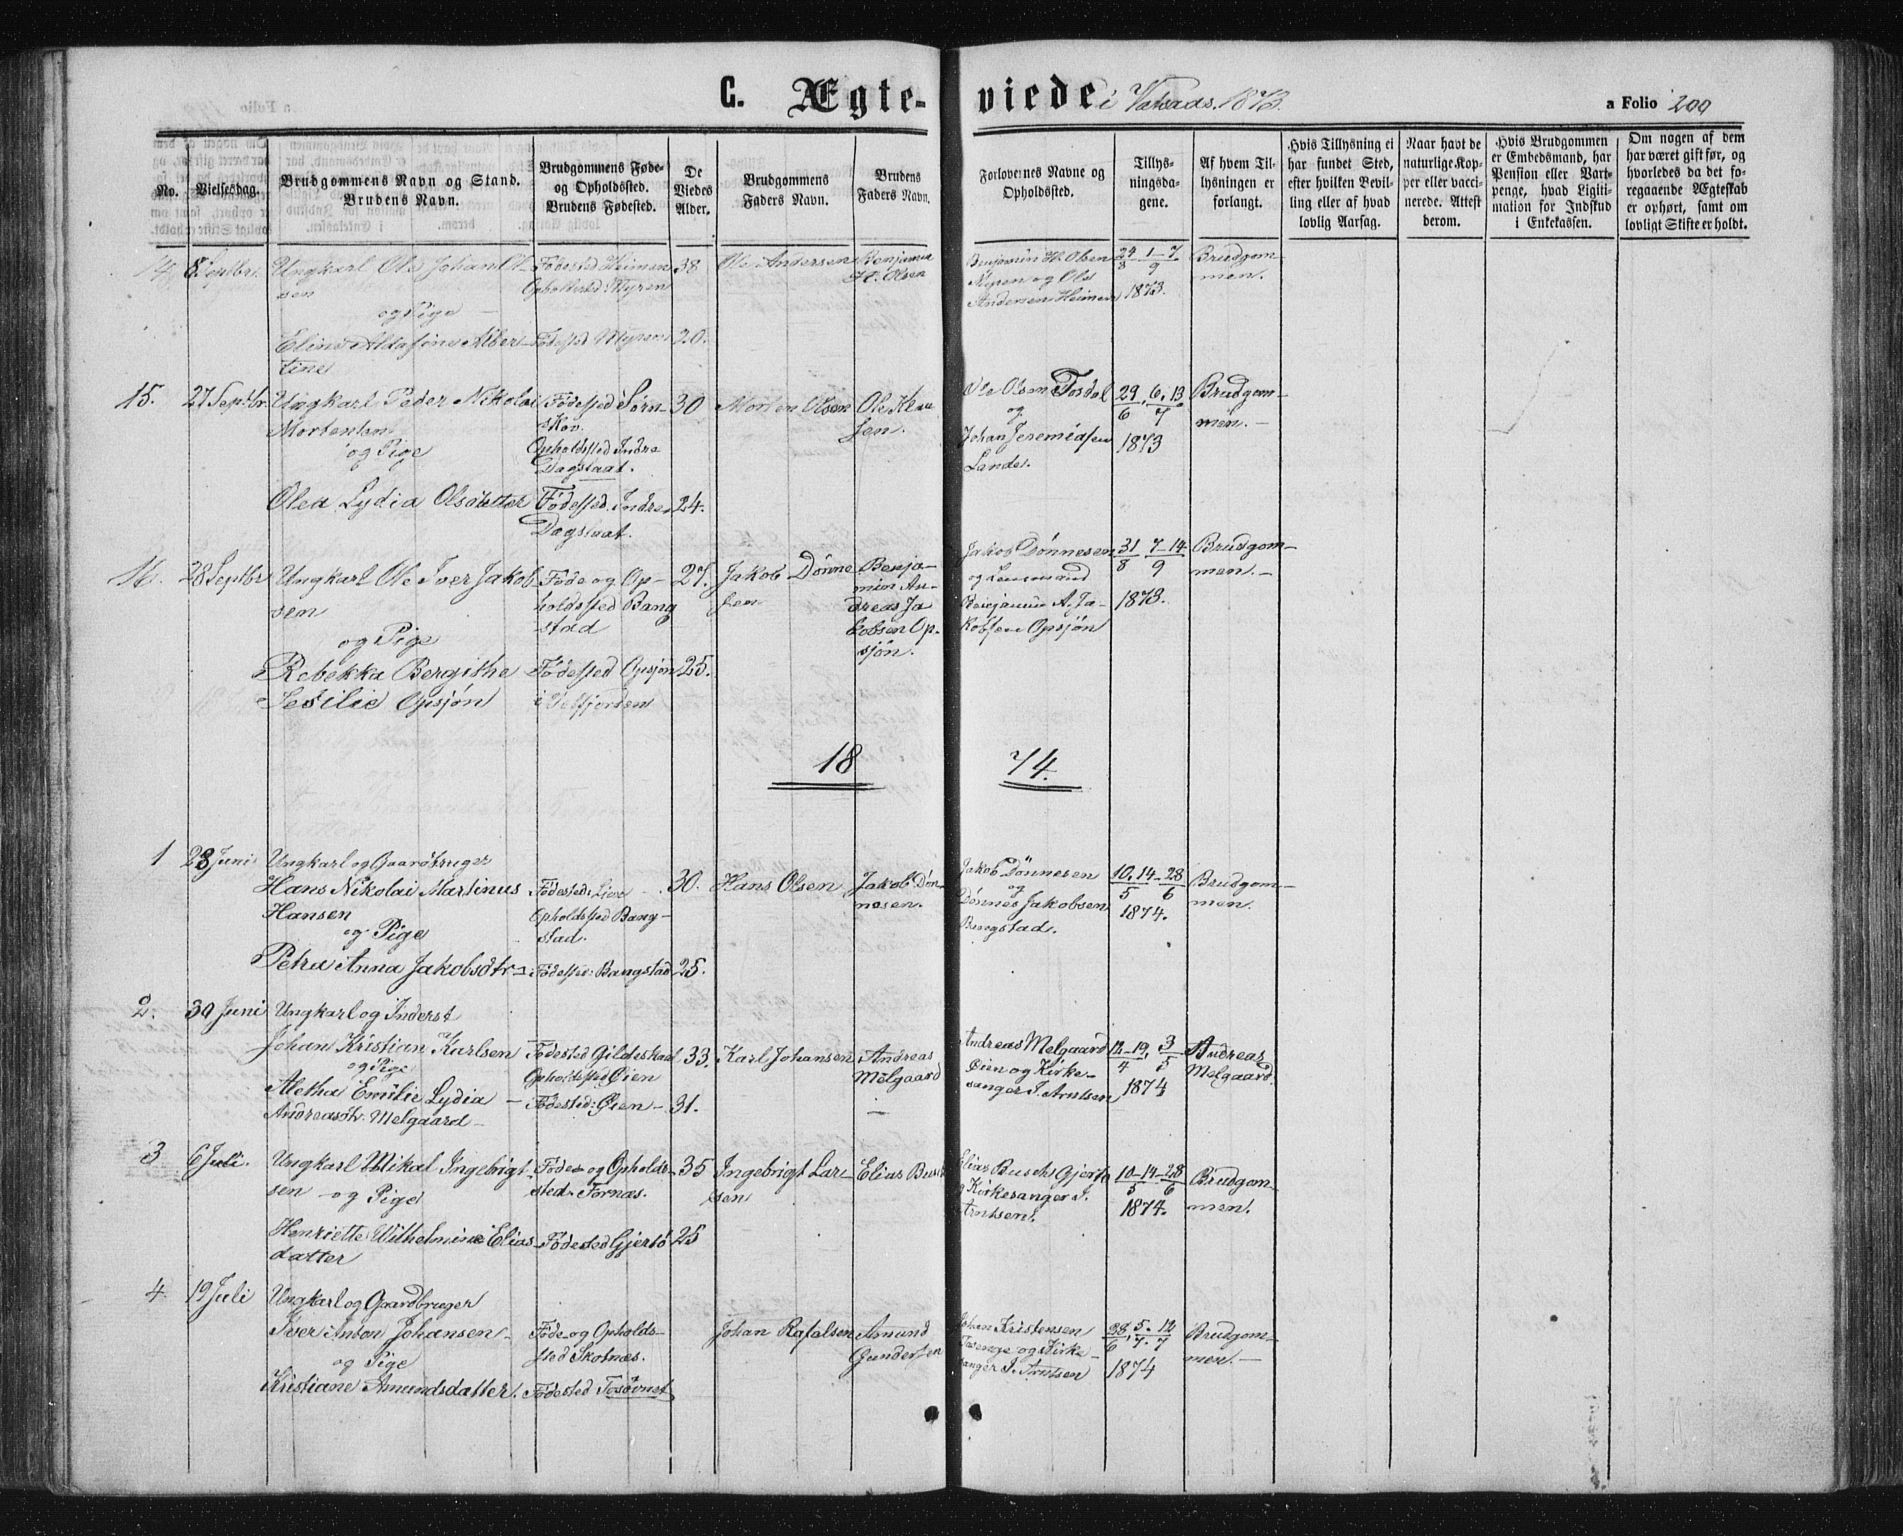 C. Ægte-viede i 1873.
a Folio 200
No.
Vielsesdag.
Brudgommens Navn og Stand.
Brudens Navn.
Brudgommens Føde-
og Opholdssted.
Brudens Fødested.
De
Viedes
Alder.
Brudgommens
Faders Navn.
Brudens
Faders Navn.
Forlovernes Navne og
Opholdssted.
Tillys-
ningsda-
gene.
Af hvem Til-
lysningen er
forlangt.
Hvis Tillysning ei
har fundet Sted,
efter hvilken Bevil-
ling eller af hvad
lovlig Aarsag.
Naar havt de
naturlige Kop-
per eller vacci-
nerede. Attest
derom.
Hvis Brudgommen
er Embedsmand, har
Pension eller Vart-
penge, hvad Ligiti-
mation for Indskud
i Enkekassen.
Om nogen af dem
har været gift før, og
hvorledes da det fo-
regaaende Ægteskab
er ophørt, samt om
lovligt Skifte er holdt.
14. 8 Septbr. Ungkarl Ole Johan Ol-
sen
og Pige
Eline Aldafine Alber-
tine
Fødested Heimen
Opholdssted: Myren
Fødested Myren
38
20.
Ole Andersen
Benjamin
H. Olsen
Benjamin H. Olsen
Myren og Ole
Andersen Heimen
24 1-7
8 9
1873.
Brudgom-
men.
15. 27 Septbr. Ungkarl Peder Nikolai
Mortensen
og Pige
Olea Lydia Olsdatter
Fødested Sørn-
skov.
Opholdssted Indre
Dagslaat.
Fødested. Indre
Dagslaat.
30
24.
Morten Olsen
Ole Klau
sen.
Ole Olsen Tosdal
og
Johan Jeremiasen
Lande.
29, 6, 13
6 7
1873
Brudgom-
men.-
16. 28 Septbr Ungkarl Ole Iver Jakob
sen
og Pige
Rebekka Bergithe
Sesilie Opsjøn
Føde og Op-
holdssted Bang
stad
Fødested Opsjøn
i Velfjorden
27.
25.
Jakob Dønne
sen
Benja-
min An-
dreas Ja
kobsen Op-
sjøn.
Jakob Dønnesen
og Lensmand
Benjamin A. Ja-
kobsen Opsjøn
31 7-14
8 9
1873.
Brudgom-
men.-
18 74.
1 28 Juni Ungkarl og Gaardbruger
Hans Nikolai Martinus
Hansen
og Pige
Petra Anna Jakobsdtr-
Fødested:
Opholdssted Bang-
stad.
Fødested: Bangstad
30.
25.
Hans Olsen
Jakob Døn-
nesen.
Jakob Dønnesen
og
Dønnes Jakobsen
Bangstad.
10, 14-28
5 6
1874.
Brudgom-
men.
2. 30 Juni Ungkarl og Inderst
Johan Kristian Karlsen
og Pige
Aletha Emilie Lydia -
Andreasdtr. Melgaard-
Fødested Gildeskaal
Opholdssted Øien
Fødested: Øien -
33.
31.
Karl Johansen
Andreas
Melgaard
-
Andreas Melgaard
Øien og Kirke-
sanger J. Arntsen
12-19, 3
4 5
1874
Andreas
Melgaard.
3 6 Juli. Ungkarl Mikal Ingebrigt-
sen - og Pige
Henriette Wilhelmine Elias-
datter
Føde- og Opholds-
sted Fornæs.
Fødested Gjertø
35
25
Ingebrigt Lar-
sen
Elias Busch
Elias Busch Gjertø
og Kirkesanger J.
Arntsen.
10-14-28
5 6
1874.
Brudgom-
men.
4. 19 Juli Ungkarl og Gaardbruger
Iver Anton Johansen-
og Pige
Kristiane Amundsdatter.
Føde- og Opholds-
sted Skotnæs.
Fødested
Johan Rafalsen
Amund
Gundersen
Johan Kristensen
og Kirke-
sanger J. Arntsen
28, 5-12
6 7. 7
1874
Brudgom-
men.-